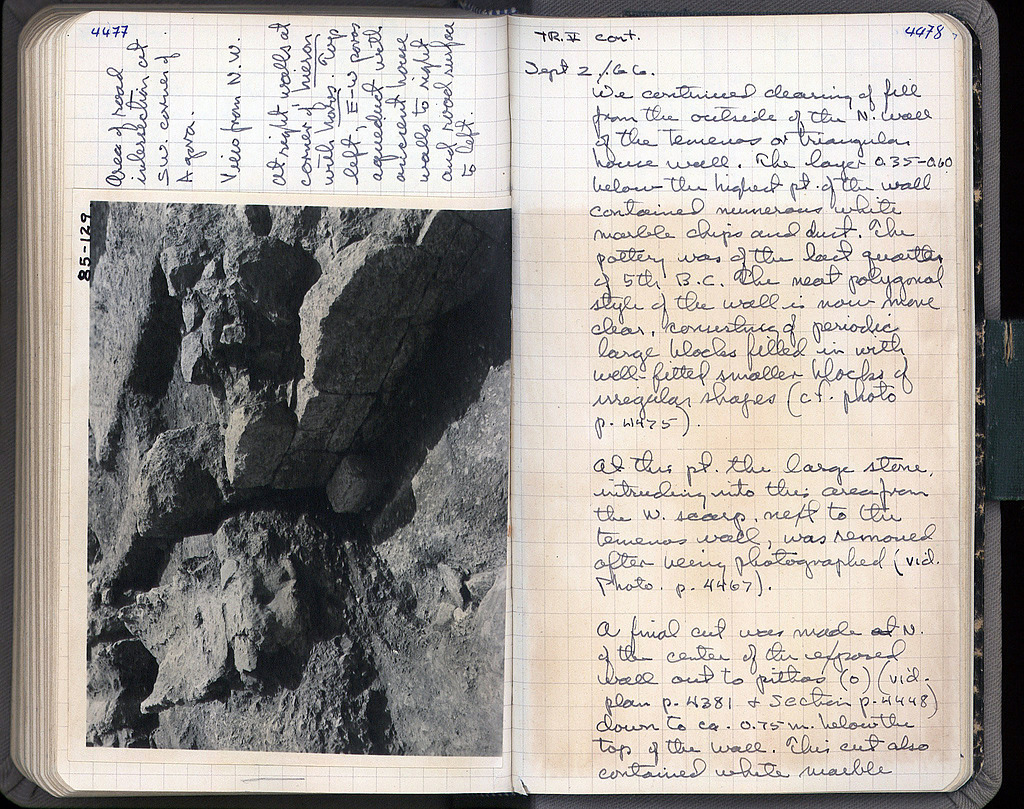 4477
Area of road
intersection at
S.W. corner of
Agora.
View from N.W.
at right walls at
corner of heroon
with horos. Top
left, E-W poros
aqueduct with
ancient house
walls to right
and road surface
to left.
85-129
4478
TR. V cont.
Sept 2/66.
We continued clearing of fill
from the outside of the N. wall
of the temenos or triangular
house wall. The layer 0.35-0.60
below the highest pt. of the wall
contained numerous white
marble chips and dust. The
pottery was of the last quarter
of 5th B.C. The neat polygonal
style of the wall is now more
clear, consisting of periodic
large blocks filled in with
well-fitted smaller blocks of
irregular shapes (cf. photo
p. 4475).
At this pt. the large stone,
intruding into this area from
the W. scarp, next to the
temenos wall, was removed
after being photographed (vid.
Photo. p. 4467).
A final cut was made at N.
of the center of the exposed
wall out to pithos (o) (vid.
plan p. 4381 + Section p. 4448)
down to ca. 0.75 m. below the
top of the wall. This cut also
contained white marble